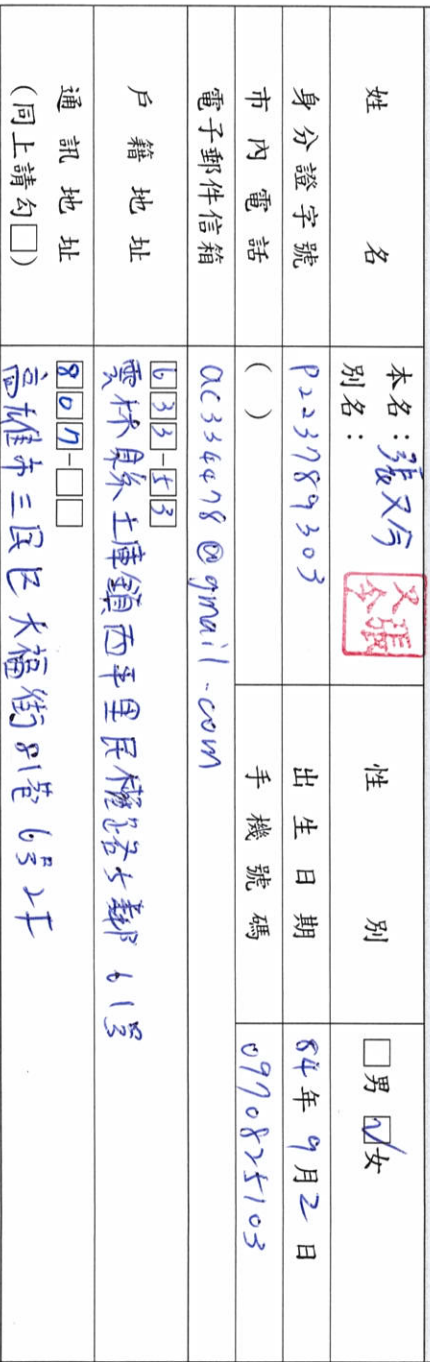 姓名 本名：張又今 性別 □男 ☑女
別名：
張又今
身分證字號 P223789303 出生日期 84年9月2日
市內電話 ( ) 手機號碼 0970825103
電子郵件信箱 ac334478@gmail.com
戶籍地址 633-53
雲林縣土庫鎮西平里民權路5鄰61號
通訊地址 807-□□
(同上請勾□) 高雄市三民区大福街81巷6号2F